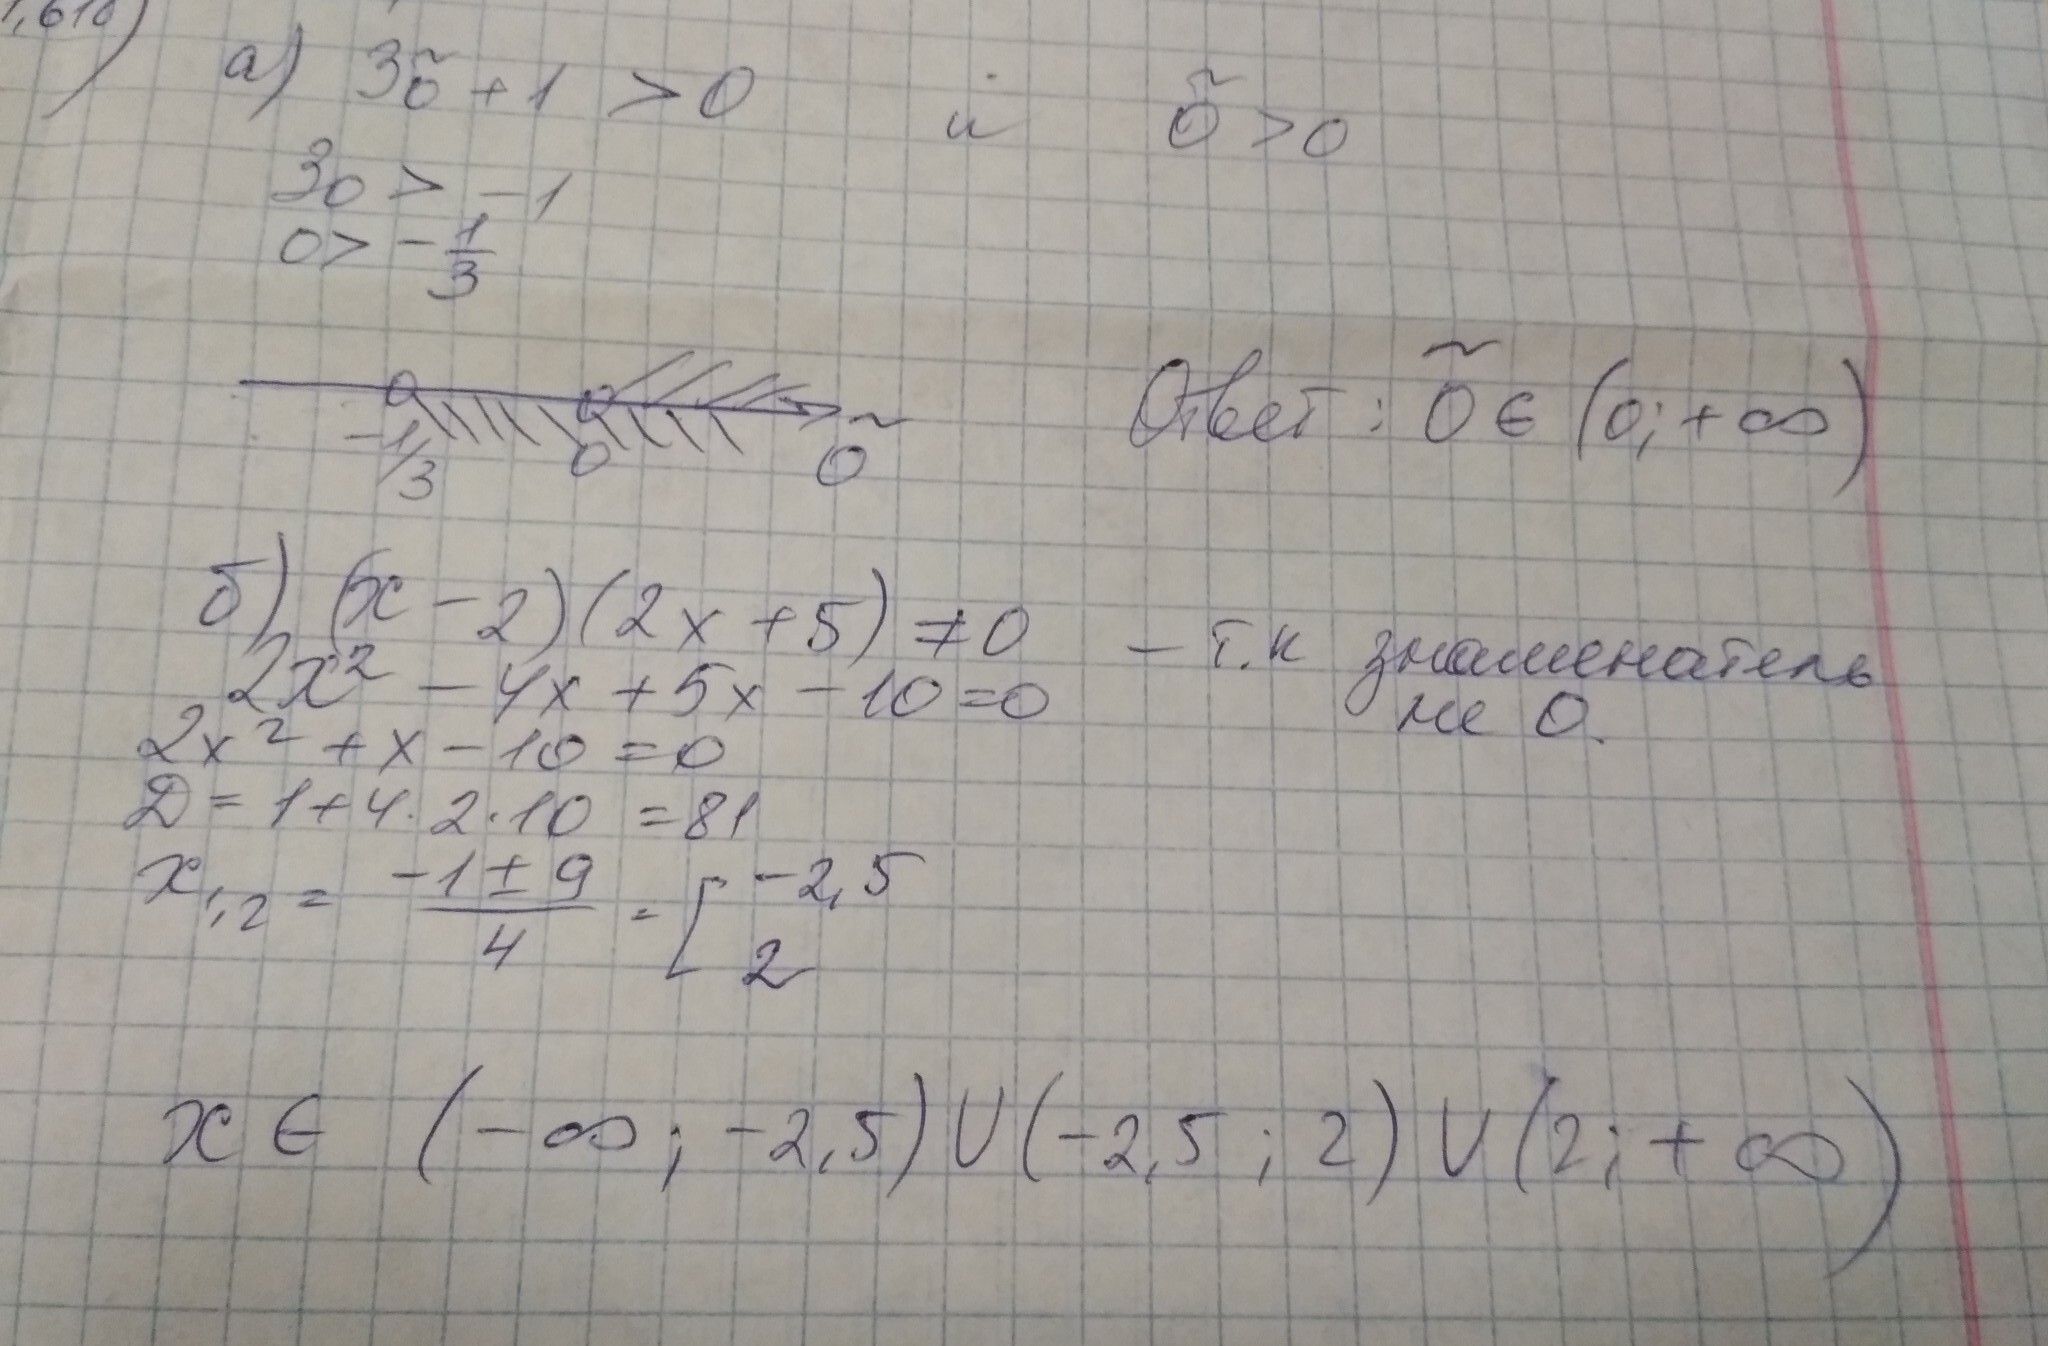 а) 3õ + 1 > 0 и õ > 0
3o > -1
0 > - 1/3
-1/3 0 õ
Ответ : õ ∈ (0; + ∞)
б) (x - 2)(2x + 5) ≠ 0 - т.к знаменатель
не 0.
2x² - 4x + 5x - 10 = 0
2x² + x - 10 = 0
D = 1 + 4 · 2 · 10 = 81
x1,2 = (-1 ± 9)/4 = [ -2,5
2
x ∈ (-∞; -2,5) U (-2,5 ; 2) U (2; + ∞)